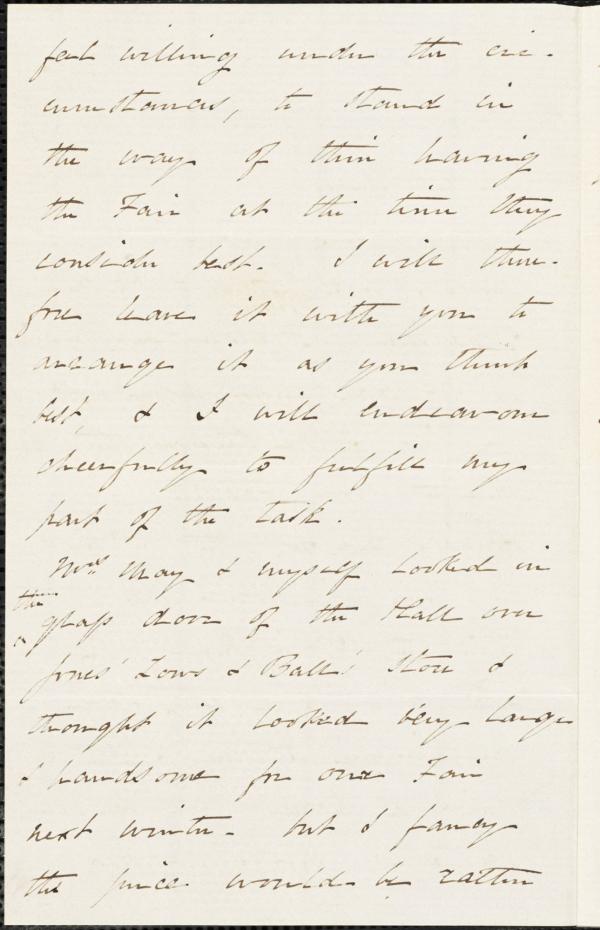 feel willing under the cir-
cumstances, to stand in
the way of their having
the Fair at the time they
consider best. I will there-
fore leave it with you to
arrange it as you think
best, & I will endeavour
cheerfully to fulfill my
part of the task.
Mrs May & myself looked in
the
glass door of the Hall over
Jones' Lows & Ball's store &
thought it looked very large
& handsome for our Fair
next winter - but I fancy
the price would be rather